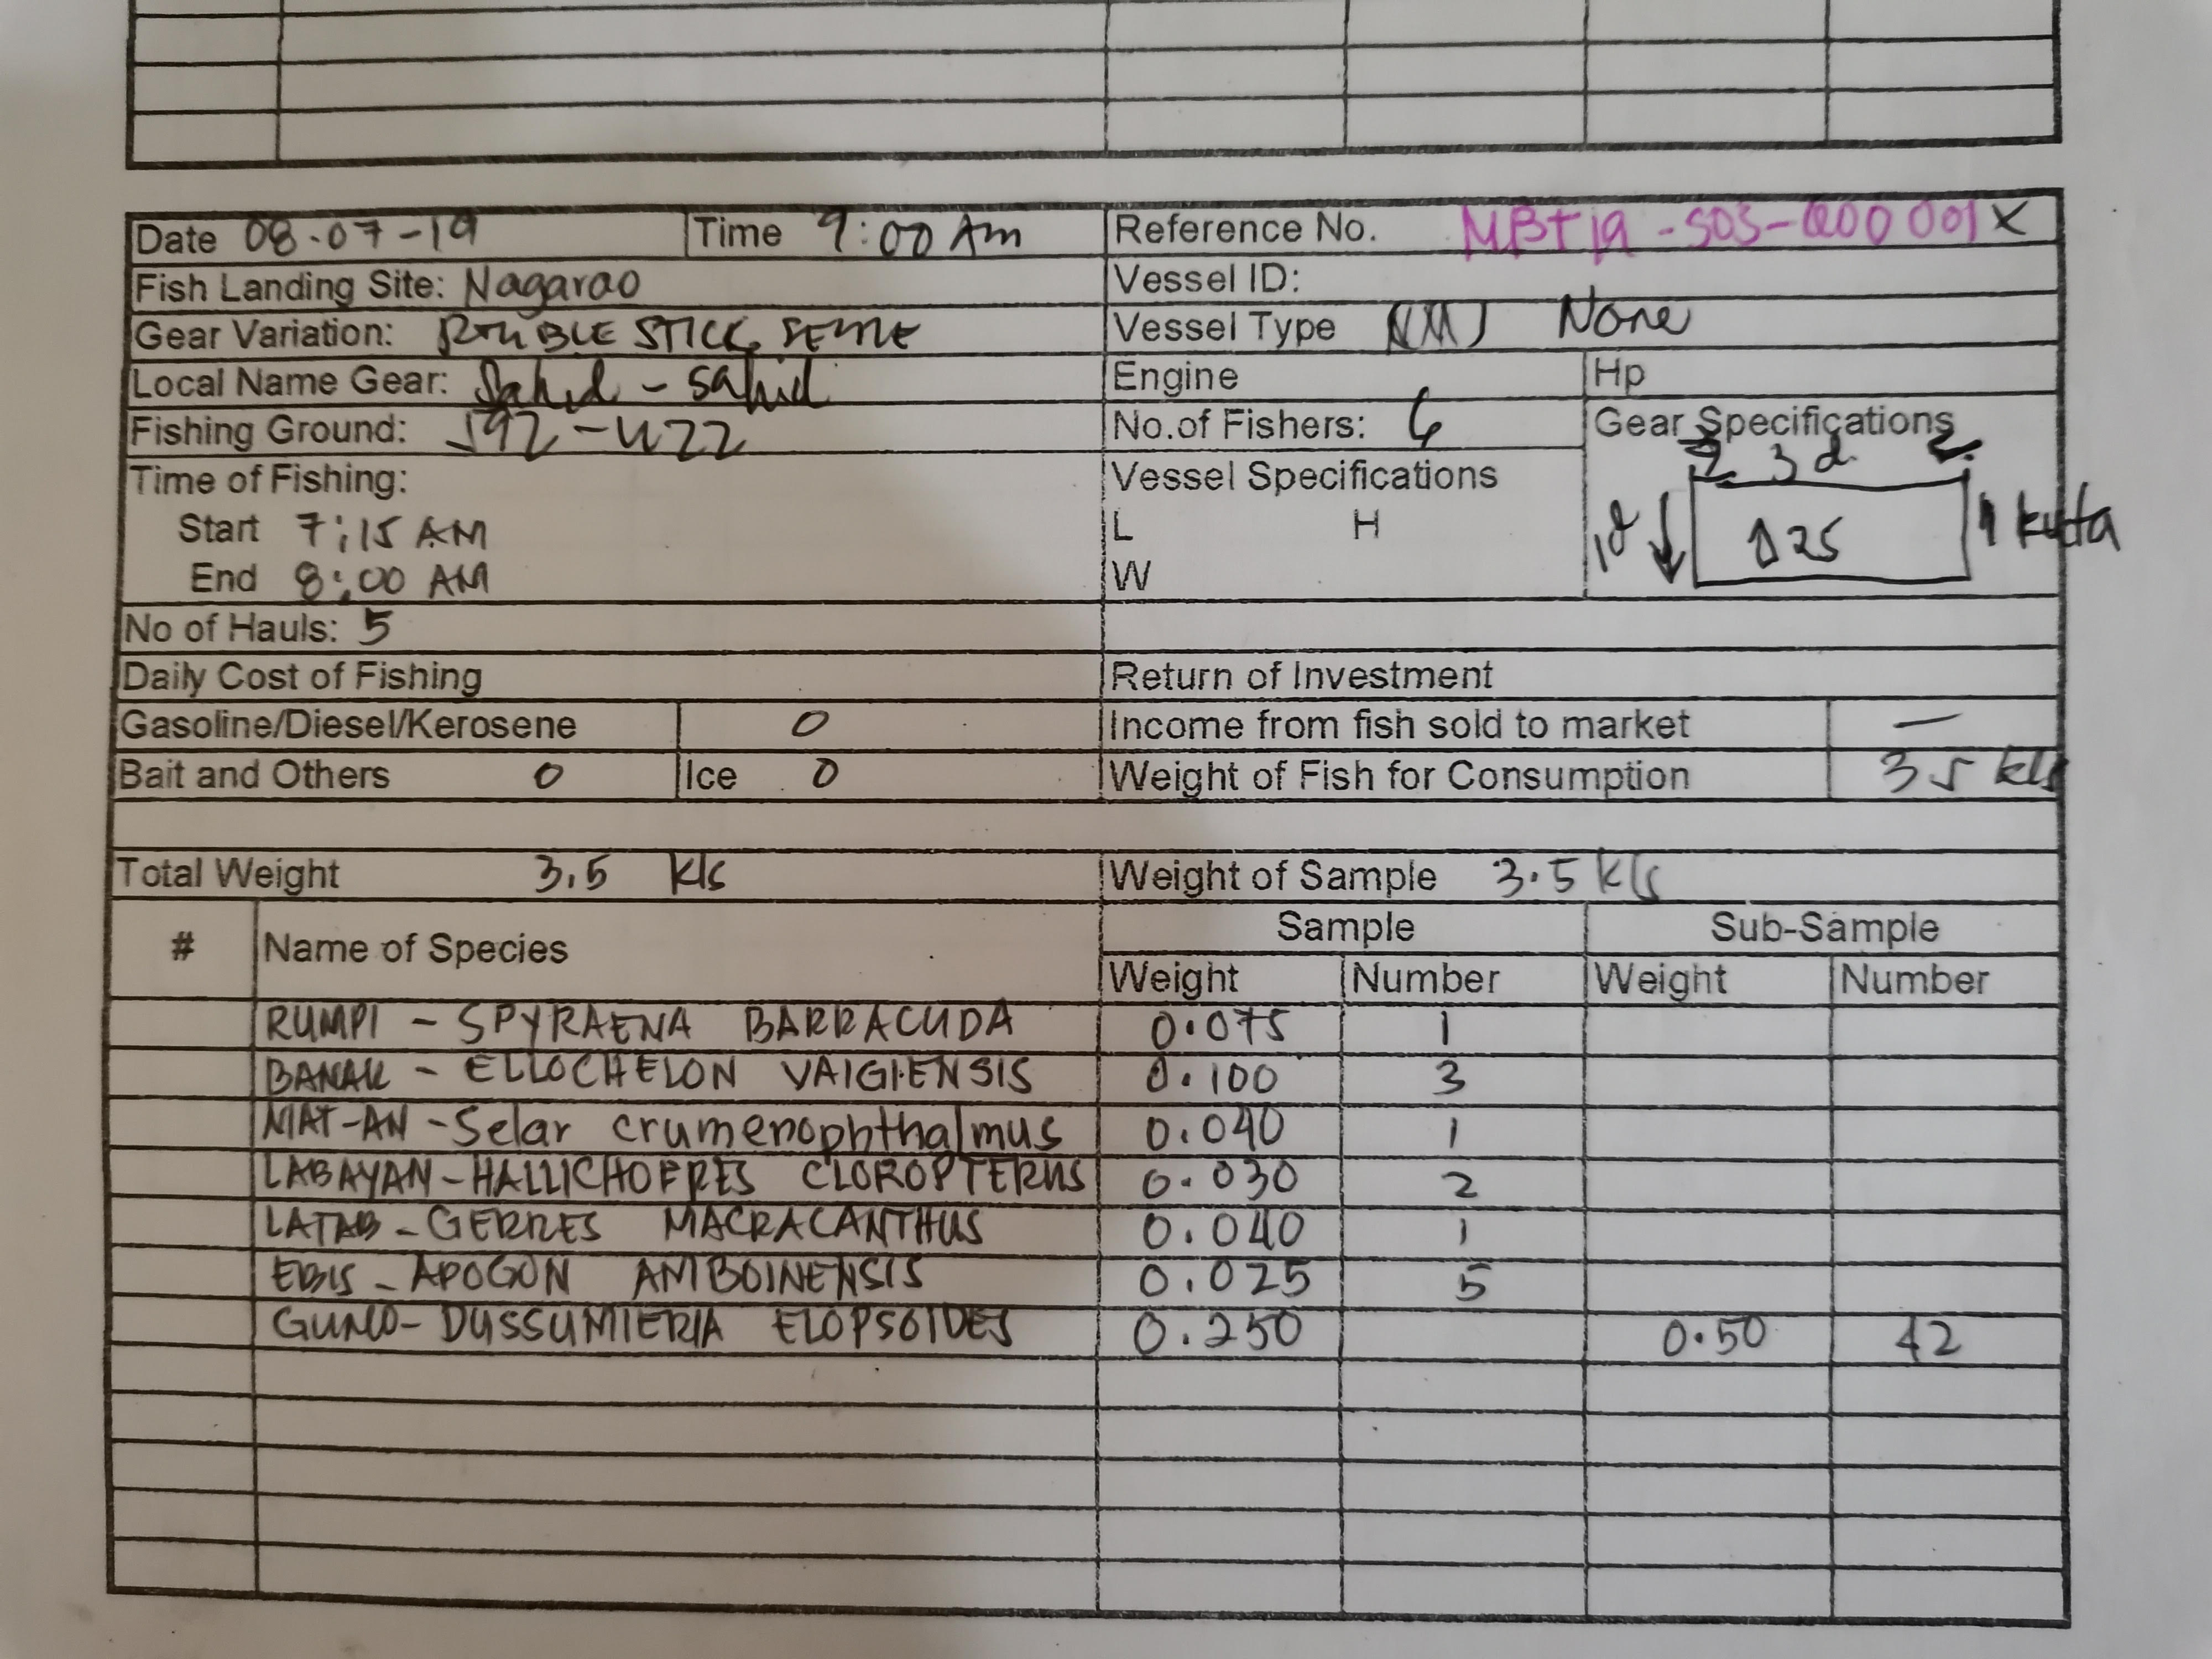 Date 08-07-19 Time 9:00 Am Reference No. MBT19-S03-000001X
Fish Landing Site: Nagarao Vessel ID:
Gear Variation: DOUBLE STICK SEINE Vessel Type None
Local Name Gear: Sahid - sahid Engine Hp
Fishing Ground: J92-U22 No.of Fishers: 6 Gear Specifications
3d
Time of Fishing: Vessel Specifications
Start 7:15 AM L H Δ25
End 8:00 AM W
No of Hauls: 5
Daily Cost of Fishing Return of Investment
Gasoline/Diesel/Kerosene 0 Income from fish sold to market —
Bait and Others 0 Ice 0 Weight of Fish for Consumption 3.5 kls
Total Weight 3.5 kls Weight of Sample 3.5 kls
# Name of Species Sample Sub-Sample
Weight Number Weight Number
RUMPI - SPYRAENA BARRACUDA 0.075 1
BANAK - ELLOCHELON VAIGIENSIS 0.100 3
MAT-AN - Selar crumenophthalmus 0.040 1
LABAYAN - HALLICHOERES CLOROPTERUS 0.030 2
LATAB - GERRES MACRACANTHUS 0.040 1
EBIS - APOGON AMBOINENSIS 0.025 5
DUSSUMIERIA ELOPSOIDES 0.250 0.50 42